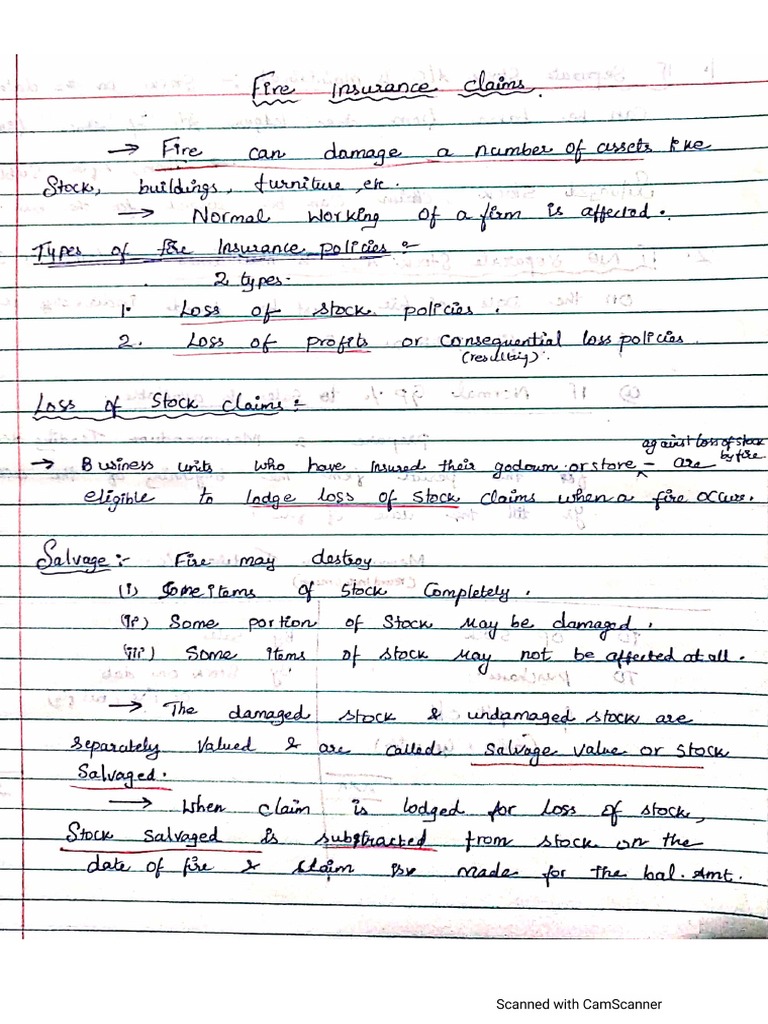 Fire Insurance claims.
→ Fire can damage a number of assets like
Stock, buildings, furniture, etc.
→ Normal working of a firm is affected.
Types of fire Insurance policies :-
2 types.
1. Loss of stock policies.
2. Loss of profits or consequential loss policies.
(resulting).
Loss of stock claims :-
against loss of stock
by fire
→ Business units who have insured their godown or store – are
eligible to lodge loss of stock claims when a fire occurs.
Salvage :- Fire may destroy
(i) Some items of stock completely.
(ii) Some portion of stock may be damaged.
(iii) Some items of stock may not be affected at all.
→ The damaged stock & undamaged stock are
separately valued & are called salvage value or stock
salvaged.
→ When claim is lodged for loss of stock,
Stock salvaged is substracted from stock on the
date of fire & claim is made for the bal. Amt.
Scanned with CamScanner